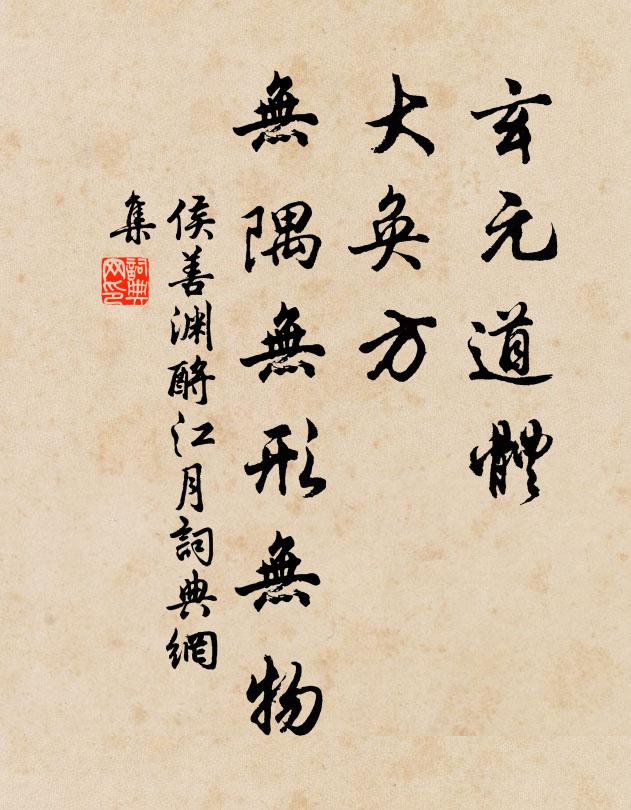 玄元道體
大奐方
無隅無形無物
侯善渊酹江月詞典網
集
詞典
网印